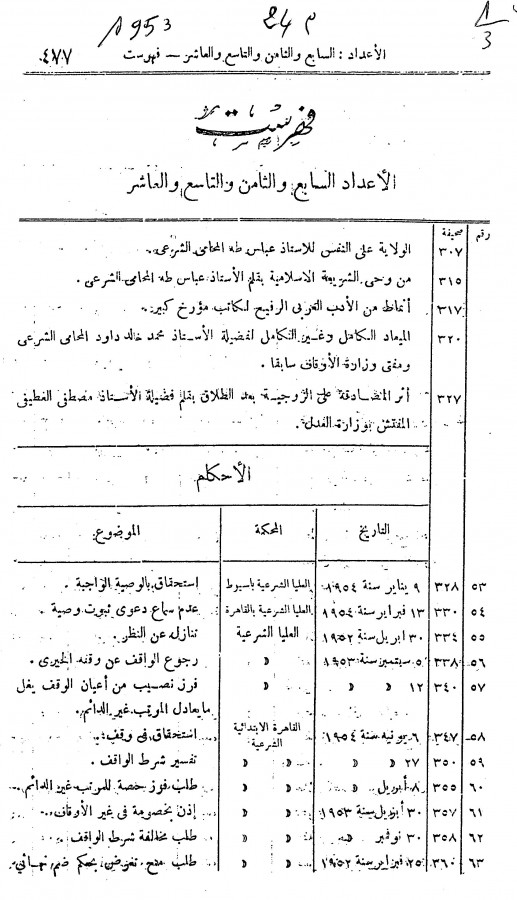 1953 24 م 1/3
الأعداد : السابع والثامن والتاسع والعاشر — فهرست ٤٧٧
فهرست
الأعداد السابع والثامن والتاسع والعاشر
رقم صحيفة
٣٠٧ الولاية على النفس للاستاذ عباس طه المحامى الشرعى .
٣١٥ من وحى الشريعة الاسلامية بقلم الأستاذ عباس طه المحامى الشرعى .
٣١٧ أنماط من الأدب العربى الرفيع لكاتب مؤرخ كبير .
٣٢٠ الميعاد الكامل وغير الكامل لفضيلة الأستاذ محمد خالد داود المحامى الشرعى
ومفتى وزارة الأوقاف سابقا .
٣٢٧ أثر المصادقة على الزوجية بعد الطلاق بقلم فضيلة الأستاذ مصطفى
المفتش بوزارة العدل .
الأحكام
التاريخ المحكمة الموضوع
٥٣ ٣٢٨ ٩ يناير سنة ١٩٥٤ العليا الشرعية باسيوط استحقاق بالوصية الواجبة .
٥٤ ٣٣٠ ١٣ فبراير سنة ١٩٥٤ العليا الشرعية بالقاهرة عدم سماع دعوى ثبوت وصية .
٥٥ ٣٣٤ ٣٠ ابريل سنة ١٩٥٢ العليا الشرعية تنازله عن النظر .
٥٦ ٣٣٨ ٥ سبتمبر سنة ١٩٥٣ » » رجوع الواقف عن وقفه الخيرى .
٥٧ ٣٤٠ ١٢ » » » » فرز نصيب من أعيان الوقف يغل
ما يعادل المرتب غير الدائم .
٥٨ ٣٤٧ ٦ يونيه سنة ١٩٥٤ القاهرة الابتدائية الشرعية استحقاق فى وقف .
٥٩ ٣٥٠ ٢٧ » » » » تفسير شرط الواقف .
٦٠ ٣٥٥ ٨ أبريل » » » طلب فرز حصة للمرتب غير الدائم .
٦١ ٣٥٧ ٣٠ أبريل سنة ١٩٥٣ » » إذن بخصومة فى غير الأوقاف .
٦٢ ٣٥٨ ٣٠ نوفمبر » » » طلب مخالفة شرط الواقف .
٦٣ ٣٦٠ ٢٥ فبراير سنة ١٩٥٢ » » طلب منح تعويض بحكم ضم نهائى .